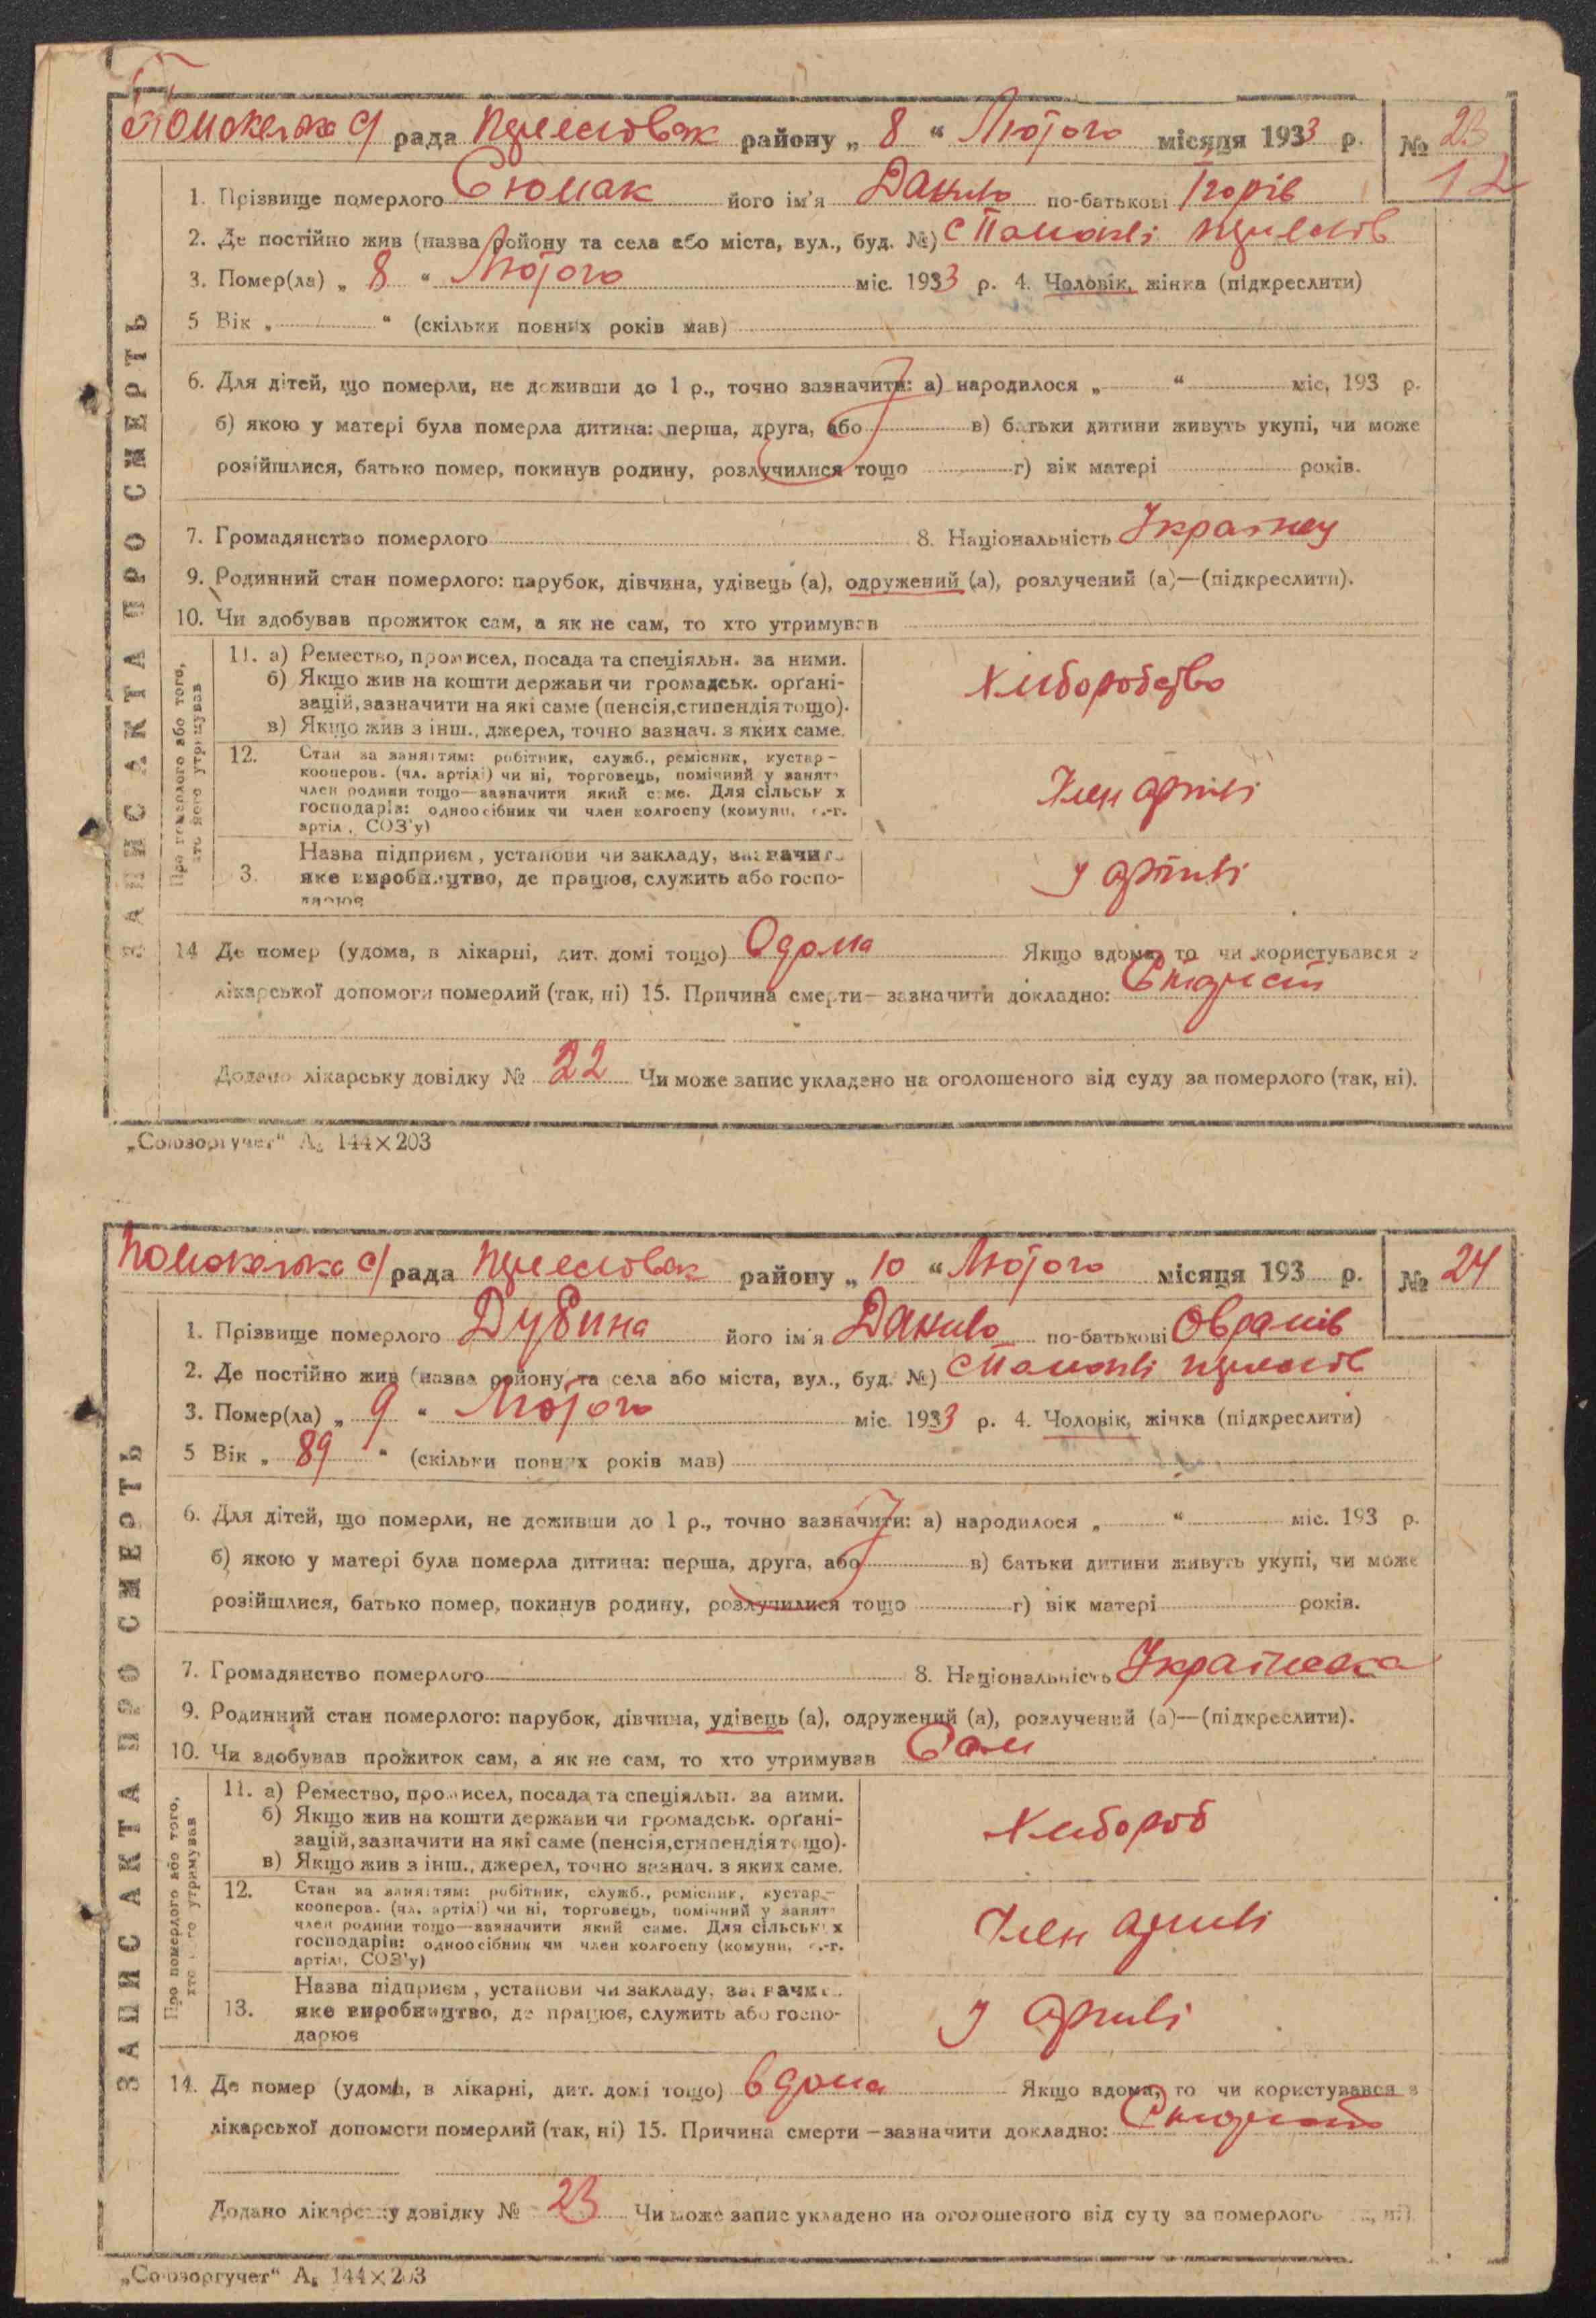 рада району „ 8 “ Лютого місяця 1933 р. № 23
12
1. Прізвище померлого Сюмак його ім'я Данило по-батькові
2. Де постійно жив (назва району та села або міста, вул., буд. №)
3. Помер(ла) „ 8 “ Лютого міс. 1933 р. 4. Чоловік, жінка (підкреслити)
5 Вік „ “ (скільки повних років мав)
6. Для дітей, що померли, не доживши до 1 р., точно зазначити: а) народилося „ “ міс. 193 р.
б) якою у матері була померла дитина: перша, друга, або в) батьки дитини живуть укупі, чи може
розійшлися, батько помер, покинув родину, розлучилися тощо г) вік матері років.
7. Громадянство померлого 8. Національність Українец
9. Родинний стан померлого: парубок, дівчина, удівець (а), одружений (а), розлучений (а)—(підкреслити).
10. Чи здобував прожиток сам, а як не сам, то хто утримував
ЗАПИС АКТА ПРО СМЕРТЬ
Про померлого або того,
хто його утримував
11. а) Ремество, промисел, посада та спеціяльн. за ними.
б) Якщо жив на кошти держави чи громадськ. орґані-
зацій, зазначити на які саме (пенсія, стипендія тощо).
в) Якщо жив з інш., джерел, точно зазнач. з яких саме.
Хліборобство
12. Стан за заняттям: робітник, служб., ремісник, кустар-
кооперов. (чл. артілі) чи ні, торговець, помічний у занят
член родини тощо—зазначити який саме. Для сільськ х
господарів: одноосібник чи член колгоспу (комуни, с.-г.
артіл , СОЗ'у)
Член артілі
3. Назва підприєм , установи чи закладу, зазначит
яке виробництво, де працює, служить або госпо-
дарює
У артілі
14 Де помер (удома, в лікарні, дит. домі тощо) Одома Якщо вдома, то чи користувався з
лікарської допомоги померлий (так, ні) 15. Причина смерти—зазначити докладно:
Додано лікарську довідку № 22 Чи може запис укладено на оголошеного від суду за померлого (так, ні).
„Союзоргучет“ А₅ 144×203
рада району „ 10 “ Лютого місяця 193 р. № 24
1. Прізвище померлого Дубина його ім'я Данило по-батькові Оврамів
2. Де постійно жив (назва району та села або міста, вул., буд. №)
3. Помер(ла) „ 9 “ Лютого міс. 1933 р. 4. Чоловік, жінка (підкреслити)
5 Вік „ 89 “ (скільки повних років мав)
6. Для дітей, що померли, не доживши до 1 р., точно зазначити: а) народилося „ “ міс. 193 р.
б) якою у матері була померла дитина: перша, друга, або в) батьки дитини живуть укупі, чи може
розійшлися, батько помер, покинув родину, розлучилися тощо г) вік матері років.
7. Громадянство померлого 8. Національність Українська
9. Родинний стан померлого: парубок, дівчина, удівець (а), одружений (а), розлучений (а)—(підкреслити).
10. Чи здобував прожиток сам, а як не сам, то хто утримував Сам
ЗАПИС АКТА ПРО СМЕРТЬ
Про померлого або того,
хто його утримував
11. а) Ремество, промисел, посада та спеціяльн. за ними.
б) Якщо жив на кошти держави чи громадськ. орґані-
зацій, зазначити на які саме (пенсія, стипендія тощо).
в) Якщо жив з інш., джерел, точно зазнач. з яких саме.
Хлібороб
12. Стан за заняттям: робітник, служб., ремісник, кустар-
кооперов. (чл. артілі) чи ні, торговець, помічний у занят
член родини тощо—зазначити який саме. Для сільськ х
господарів: одноосібник чи член колгоспу (комуни, с.-г.
артілі, СОЗ'у)
Член артілі
13. Назва підприєм , установи чи закладу, зазначит
яке виробництво, де працює, служить або госпо-
дарює
У артілі
14. Де помер (удома, в лікарні, дит. домі тощо) вдома Якщо вдома, то чи користувався з
лікарської допомоги померлий (так, ні) 15. Причина смерти—зазначити докладно:
Додано лікарську довідку № 23 Чи може запис укладено на оголошеного від суду за померлого
„Союзоргучет“ А₅ 144×203